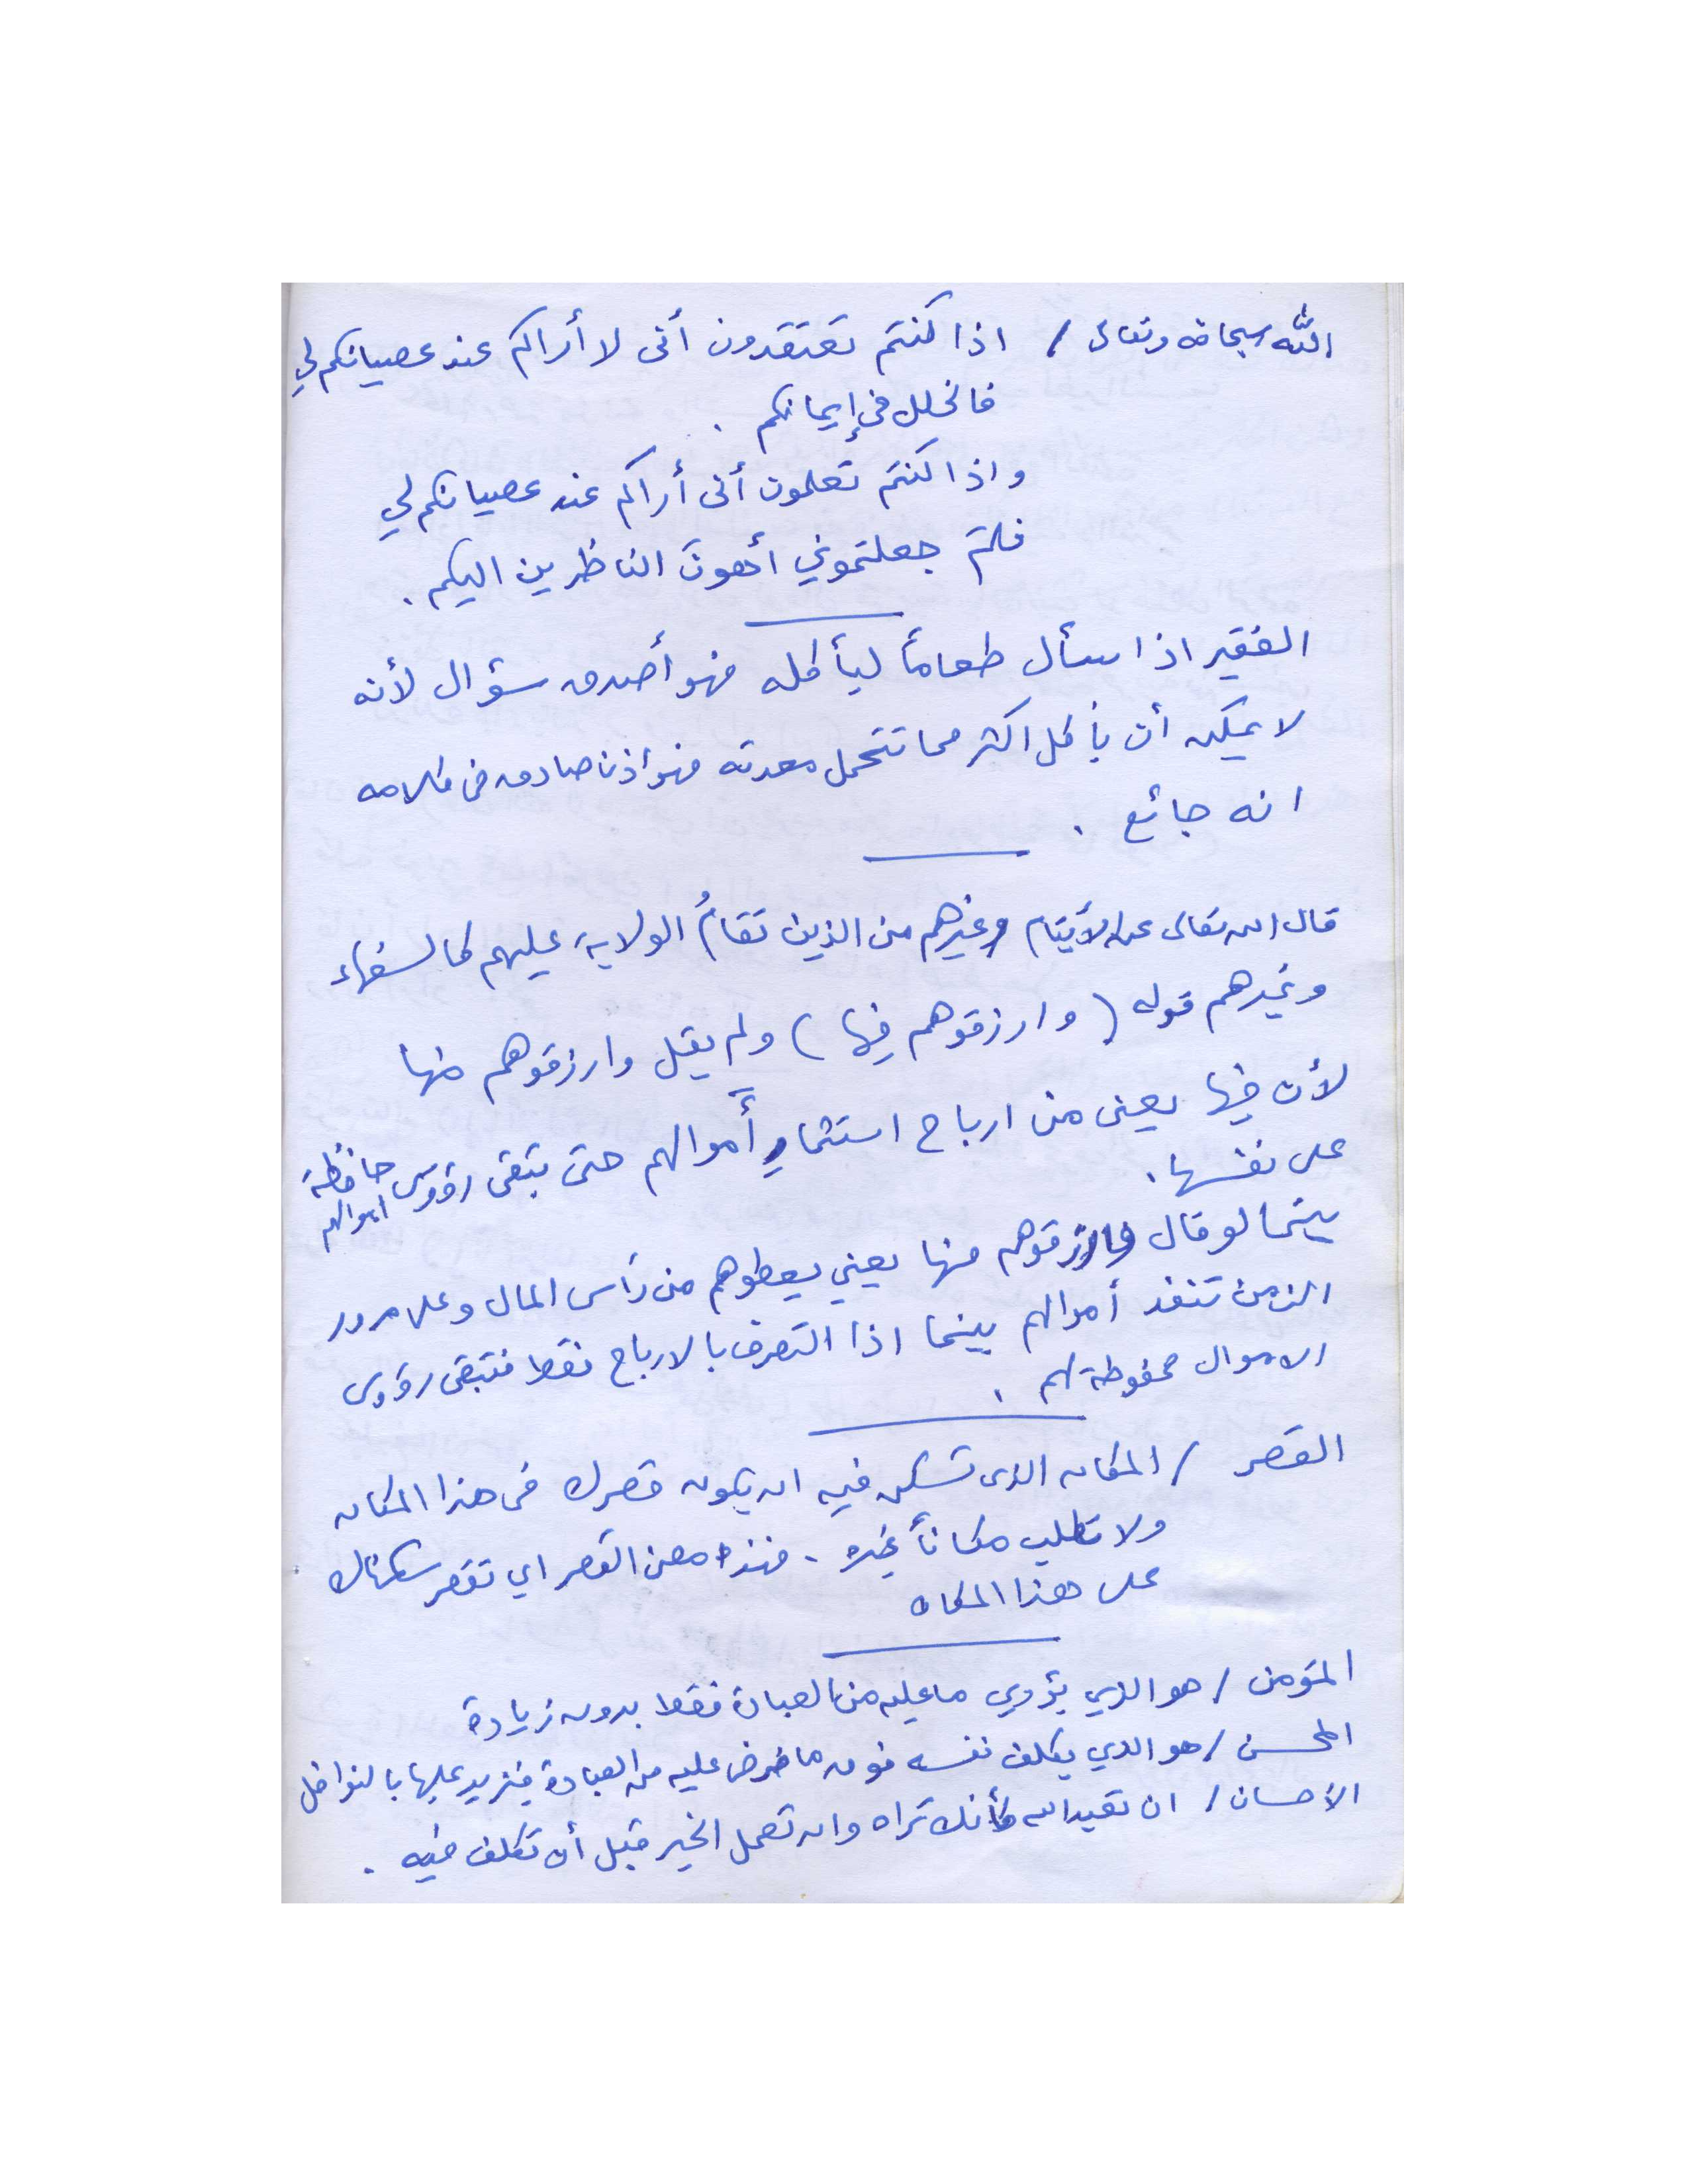 الله سبحانه وتعالى / اذا كنتم تعتقدون أنى لا أراكم عند عصيانكم لي
فالخلل فى إيمانكم .
واذا كنتم تعلمون أنى أراكم عند عصيانكم لي
فلمَ جعلتموني أهونَ الناظرين اليكم .
الفقير اذا سأل طعاماً ليأكله فهو أصدق سؤال لأنه
لا يمكن أن يأكل اكثر مما تتحمل معدته فهو اذن صادق فى كلامه
انه جائع .
قال الله تعالى عن الأيتام وغيرهم من الذين تقامُ الولاية عليهم كالسفهاء
وغيرهم قوله ( وارزقوهم فيها ) ولم يقل وارزقوهم منها
لأن فيها يعنى من ارباح استثمارِ أموالهم حتى تبقى رؤوس اموالهم حافظة
على نفسها .
بينما لو قال وارزقوهم منها يعني يعطوهم من رأس المال وعلى مرور
الزمن تنفد أموالهم بينما اذا التصرف بالارباح فقط فتبقى رؤوس
الاموال محفوظة لهم .
القصر / المكان الذى تسكن فيه ان يكون قصرك فى هذا المكان
ولا تطلب مكاناً غيره . فهذه معنى القصر اي تقصر سكناك
على هذا المكان
المؤمن / هو الذي يؤدي ما عليه من العبادة فقط بدون زيادة
المحسن / هو الذي يكلف نفسه فوق ما فرض عليه من العبادة فيزيد عليها بالنوافل
الأحسان / ان تعبد الله كأنك تراه وان تعمل الخير قبل أن تكلف فيه .